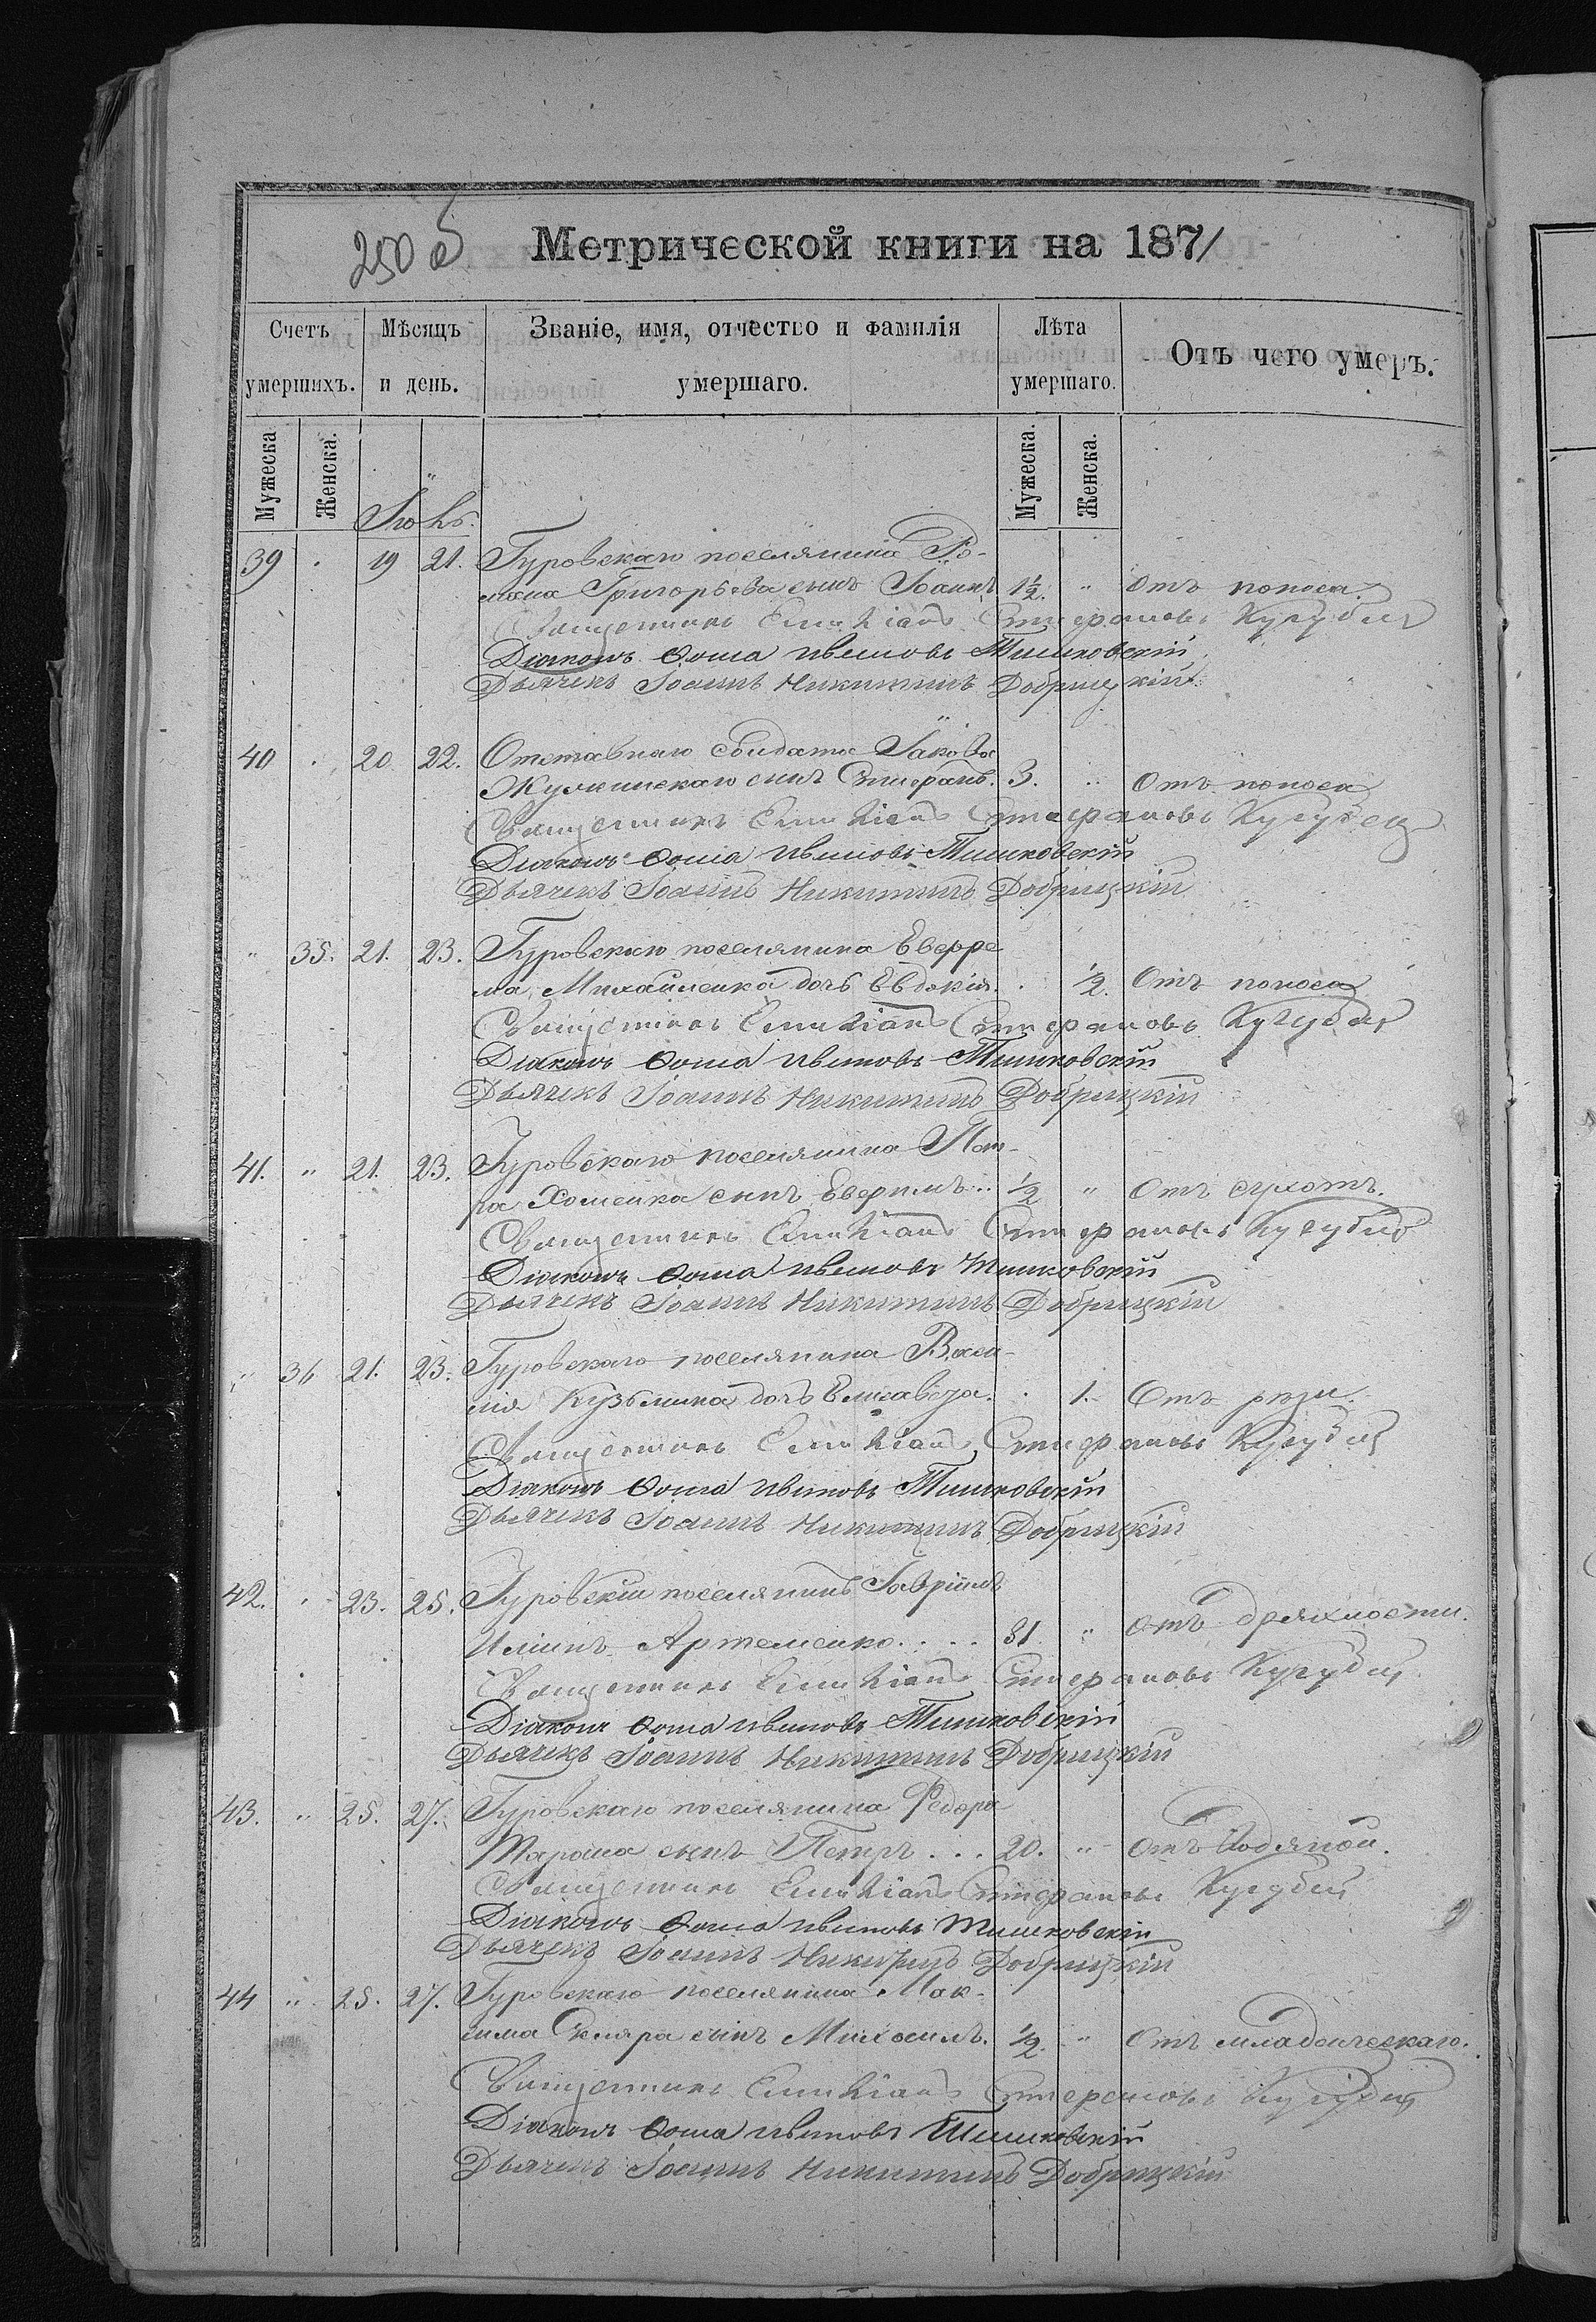 250 об
Метрической книги на 1871
Счетъ умершихъ.
Мѣсяцъ и день.
Званіе, имя, отчество и фамилія умершаго.
Лѣта умершаго.
Отъ чего умеръ.
Мужеска
Женска.
Мужеска.
Женска.
39 " 19 21. Гуровскаго поселянина Ро-
мана Григорьева сынъ Іоаннъ 1½. " Отъ поноса.
Священникъ Емиліанъ Стефановъ
Діаконъ Ѳома Ивановъ Тишковскій
Дьячекъ Іоаннъ Никитинъ Добрицкій
40 " 20 22. Отставнаго Солдата Іакова
сынъ Стефанъ. 3. " Отъ поноса
Священникъ Емиліанъ Стефановъ
Діаконъ Ѳома Ивановъ Тишковскій
Дьячекъ Іоаннъ Никитинъ Добрицкій
" 35. 21. 23. Гуровскаго поселянина Евфре
ма Михайленка дочь Евдокія. " ½. Отъ поноса
Священникъ Емиліанъ Стефановъ
Діаконъ Ѳома Ивановъ Тишковскій
Дьячекъ Іоаннъ Никитинъ Добрицкій
41. " 21. 23. Гуровскаго поселянина Пет-
ра Хоменка сынъ Евфимъ.. ½ " Отъ сухотъ.
Священникъ Емиліанъ Стефановъ
Діаконъ Ѳома Ивановъ Тишковскій
Дьячекъ Іоаннъ Никитинъ Добрицкій
" 36 21. 23. Гуровскаго поселянина Васи-
лія Кузьмина дочь Елисавета. " 1. Отъ рѣзи.
Священникъ Емиліанъ Стефановъ
Діаконъ Ѳома Ивановъ Тишковскій
Дьячекъ Іоаннъ Никитинъ Добрицкій
42. " 23. 25. Гуровскій поселянинъ Гавріилъ
Иліинъ Артеменко.... 81. " Отъ дряхлости.
Священникъ Емиліанъ Стефановъ
Діаконъ Ѳома Ивановъ Тишковскій
Дьячекъ Іоаннъ Никитинъ Добрицкій
43. " 25. 27. Гуровскаго поселянина Федора
сынъ Петръ... 20. " Отъ Водяной.
Священникъ Емиліанъ Стефановъ
Діаконъ Ѳома Ивановъ Тишковскій
Дьячекъ Іоаннъ Никитинъ Добрицкій
44 " 25. 27. Гуровскаго поселянина Мак-
сима Скляра сынъ Михаилъ. ½. " Отъ младенческаго.
Священникъ Емиліанъ Стефановъ
Діаконъ Ѳома Ивановъ Тишковскій
Дьячекъ Іоаннъ Никитинъ Добрицкій